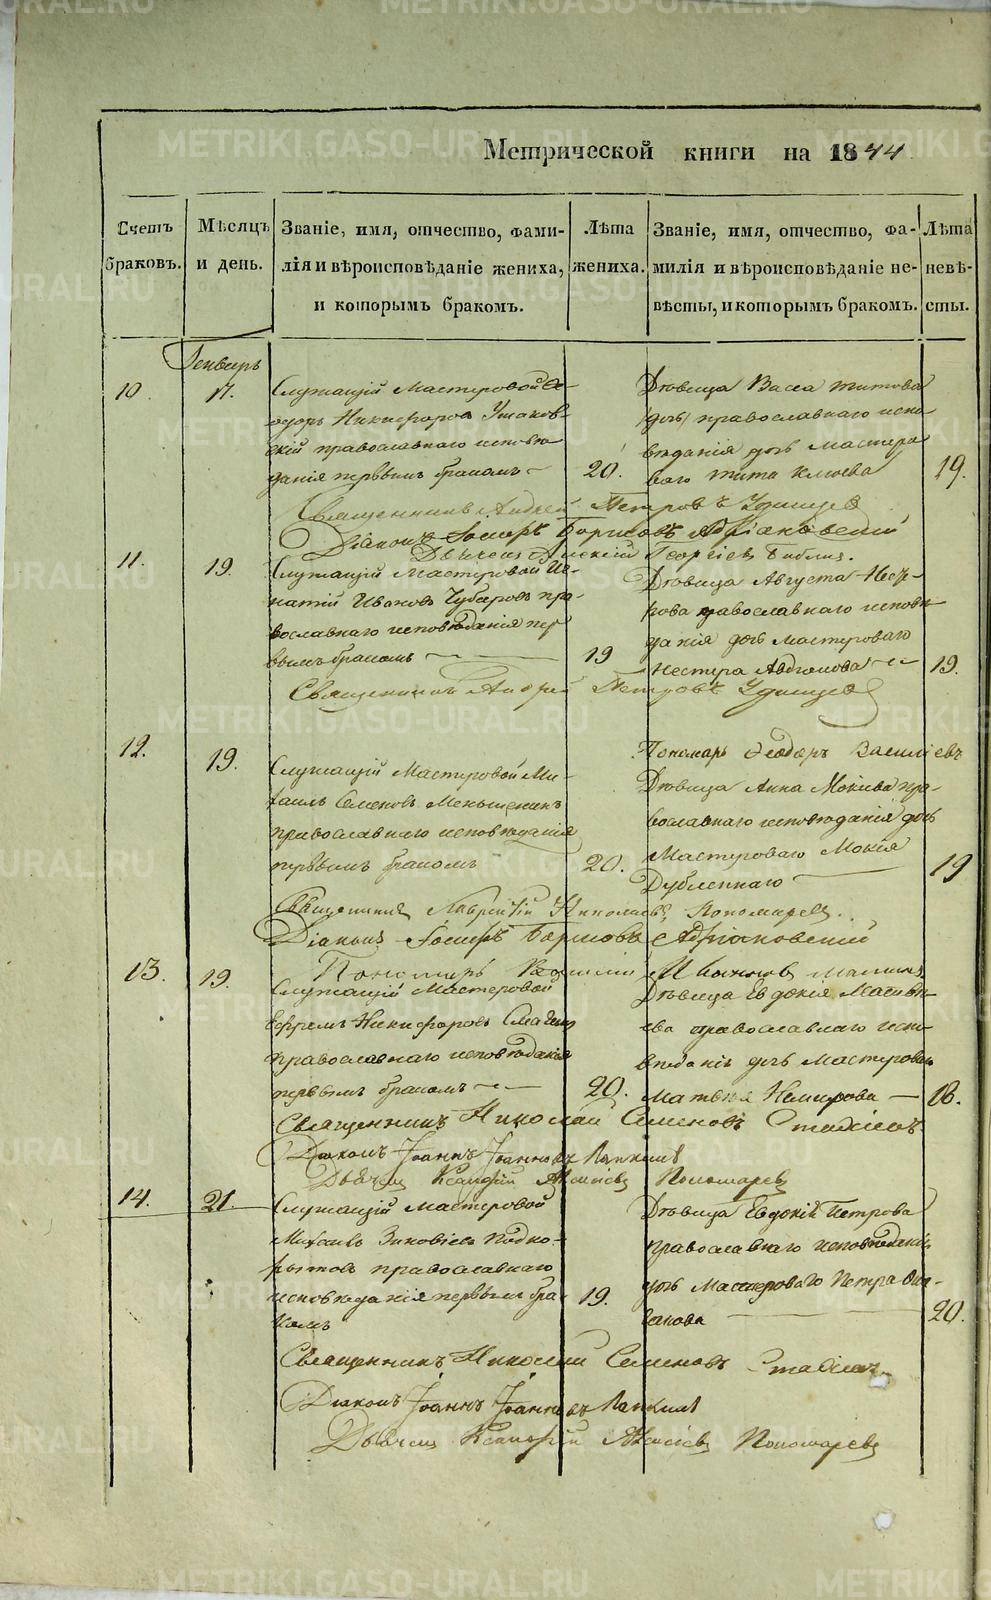 Метрической книги на 1844
Счетъ браковъ.
Мѣсяцъ и день.
Званіе, имя, отчество, фами-
лія и вѣроисповѣданіе жениха,
и которымъ бракомъ.
Лѣта
жениха.
Званіе, имя, отчество, фа-
милія и вѣроисповѣданіе не-
вѣсты, и которымъ бракомъ.
Лѣта
невѣ-
сты.
Генварь
10.
17.
Служащій Мастеровой Ѳе-
одоръ Никифоровъ Ушаков-
скій православнаго исповѣ-
данія первымъ бракомъ
20.
Дѣвица Васса Титова
дочь православнаго испо-
вѣданія дочь Мастеро-
ваго Тита Клюева
19.
Священникъ Андрей Петровъ Удинцевъ
Діаконъ Іосифъ Борисовъ Адріановскій
Дьячекъ Алексій Георгіевъ Библиц.
11.
19.
Служащій Мастеровой Иг-
натій Ивановъ Чубаровъ пра-
вославнаго исповѣданія пер
вымъ бракомъ
19
Дѣвица Августа Несте-
рова православнаго исповѣ-
данія дочь мастероваго
Нестера
19.
Священникъ Андрей Петровъ Удинцевъ
Пономарь Ѳеодоръ Василіевъ
12.
19.
Служащій Мастеровой Ми-
хаилъ Семеновъ Меньшенинъ
православнаго исповѣданія
первымъ бракомъ
20.
Дѣвица Анна Мокіева пра-
вославнаго исповѣданія дочь
Мастероваго Мокія
Дубленнаго
19
Священникъ Лаврентій Николаевъ Пономаревъ.
Діаконъ Іосифъ Борисовъ Адріановскій
Пономарь Василій Ивановъ
13.
19.
Служащій Мастеровой
Ефремъ Никифоровъ Смагинъ
православнаго исповѣданія
первымъ бракомъ
20.
Дѣвица Евдокія Матвѣ-
ева православнаго испо-
вѣданія дочь Мастероваго
Матвѣя Немирова
18.
Священникъ Николай Семеновъ
Діаконъ Іоаннъ Іоанновъ
Дьячекъ Ксанфій Алексіевъ Пономаревъ
14.
21.
Служащій мастеровой
Михаилъ Зиновіевъ Подко-
рытовъ православнаго
исповѣданія первымъ бра-
комъ
19.
Дѣвица Евдокія Петрова
православнаго исповѣданія
дочь Мастероваго Петра
20.
Священникъ Николай Семеновъ
Діаконъ Іоаннъ Іоанновъ
Дьячекъ Ксанфій Алексіевъ Пономаревъ
METRIKI.GASO-URAL.RU